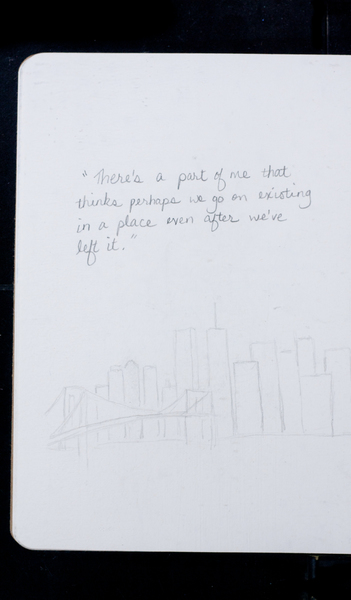 "There's a part of me that
thinks perhaps we go on existing
in a place even after we've
left it."